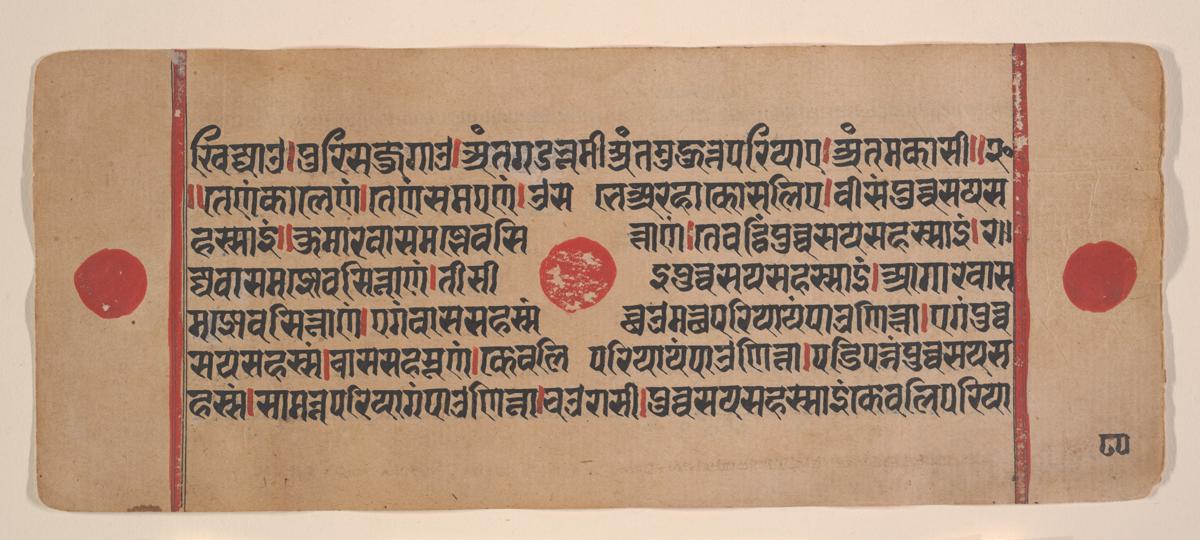 खिज्जाउ।पुरिसजुगाउ।अंतगडभूमीअंतमुहुत्तपरियाए।अंतमकासी॥२०
॥तेणंकालेणं।तेणंसमएणं।उस भेअरहाकोसलिए।वीसंपुव्वसयस
हस्साइं॥कुमारवासमझेवसि त्ताणं।तेवट्ठिंपुव्वसयसहस्साइं।र॥
ज्जवासमझेवसित्ताणं।तीसी इपुव्वसयसहस्साइं।आगारवास
मझेवसित्ताणं।एगंवाससहस्सं छउमत्थपरियायंपाउणित्ता।एगंपुव्व
सयसहस्स।वाससहस्सूणं।केवलि परियायंपाउणित्ता।पडिपन्नंपुव्वसयस
हस्सं।सामन्नपरियागंपाउणित्ता।चउरासी।पुव्वसयसहस्साइंकेवलिपरिया